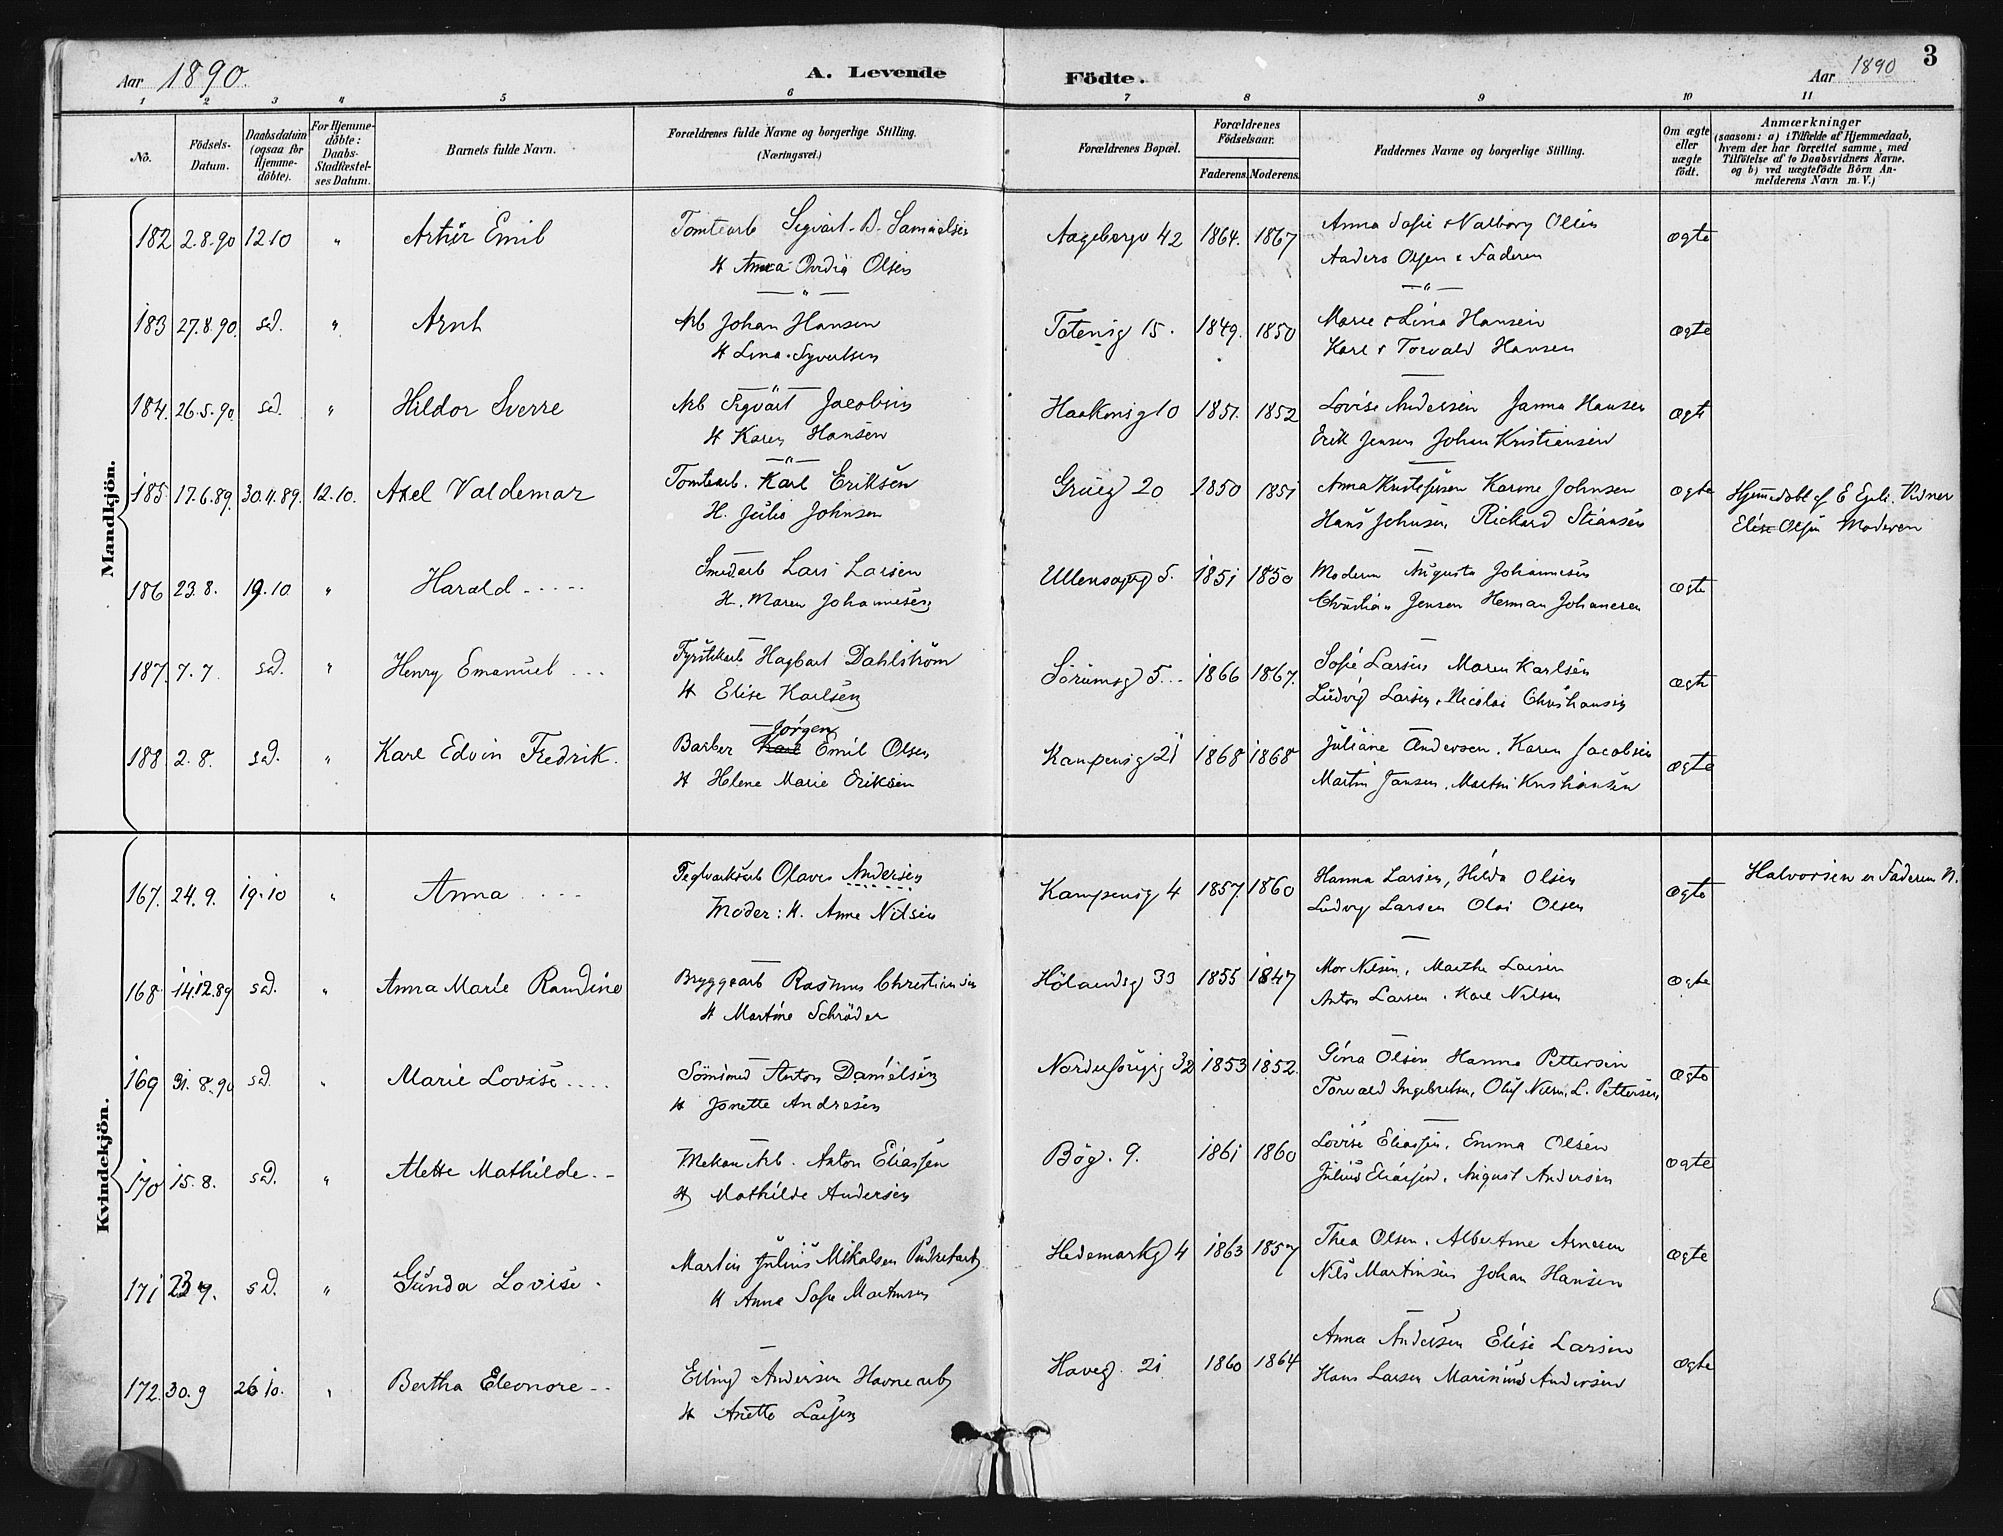 Aar 1890.
A. Levende Födte.
Aar 1890
3
1 2 3 4 5 6 7 8 9 10 11
No.
Födsels-Datum.
Daabsdatum (ogsaa for Hjemme-döbte).
For Hjemme-döbte: Daabs-Stadfæstel-ses Datum.
Barnets fulde Navn.
Forældrenes fulde Navne og borgerlige Stilling.
(Næringsvei.)
Forældrenes Bopæl.
Forældrenes Födselsaar.
Faderens. Moderens.
Faddernes Navne og borgerlige Stilling.
Om ægte eller uægte födt.
Anmærkninger
(saasom: a) i Tilfælde af Hjemmedaab,
hvem der har forrettet samme, med
Tilföielse af to Daabsvidners Navne.
og b) ved uægtefödte Börn An-
melderens Navn m. V.)
Mandkjön.
182 2.8.90 12 10 " Artur Emil Tomtearb Sigvart. B. Samuelsen Aagebergv 42 1864. 1867 Anna Sofie & Valborg Olsen ægte
H Anna Ovidia Olsen Anders Olsen & Faderen
183 27.8.90. sd. " Arnt Arb Johan Hansen Totensg 15. 1849. 1850 Marie & Lina Hansen ægte
H Lina Syvertsen Karl & Torvald Hansen
184. 26.5.90. sd. " Hildor Sverre Arb Sigvart Jacobsen Haakonsg 10 1851. 1852 Lovise Andersen Janna Hansen ægte
H Karen Hansen Erik Jensen Johan Kristiansen
185. 17.6.89. 30.11.89. 12.10. Axel Valdemar Tomtearb. Karl Eriksen Grueg 20 1850 1851 Anna Kristofersen Karine Johnsen ægte Hjemmedøbt af E Egeli. Vidner
H. Julie Johnsen Hans Johnsen, Rickard Stiansen Elise Olsen Moderen
186 23.8. 19.10 " Harald Smedarb Lars Larsen Ullensagerg 5. 1851 1850 Moderen Augusta Johannesen ægte
H. Maren Johannesen Christian Jensen Herman Johanesen
187. 7.7. sd. " Henry Emanuel Fyrstikarb Hagbart Dahlström Sörumsg 5 1866 1867. Sofie Larsen Maren Karlsen ægte
H Elise Karlsen Ludvig Larsen, Nicolai Christiansen
188. 2.8. sd. " Karl Edvin Fredrik. Barber Karl Jørgen Emil Olsen Kampensg 21 1868 1868 Juliane Andersen, Karen Jacobsen ægte
H Helene Marie Eriksen Martin Jansen, Martin Kristiansen
Kvindekjön.
167. 24.9. 19.10 " Anna Teglverksarb Olaves Andersen Kampensg 4 1857. 1860 Hanna Larsen, Hilda Olsen ægte Halvorsen er Faderens N.
Moder: H. Anne Nilsen Ludvig Larsen Olai Olsen
168. 14.12.89 sd. " Anna Marie Randine Bryggearb Rasmus Christiansen Hölandsg 33 1855 1847 Mor Nilsen, Marthe Larsen ægte
H Martine Schröder Anton Larsen, Karl Nilsen
169 31.8.90 sd. " Marie Lovise Sömsmed Anton Danielsen 32 1853 1852. Gina Olsen Hanna Pettersen ægte
H Jonette Andresen Torvald Ingebretsen, Oluf Nilsen, L. Pettersen,
170 15.8. sd. " Alette Mathilde Mekan Arb. Anton Eliassen Bög. 9. 1861 1860 Lovise Eliassen, Emma Olsen ægte
H Mathilde Andersen Julius Eliassen, August Andersen
171 23 9. sd. " Gunda Lovise Martin Julius Mikalsen Hedemarkg 4 1863 1857 Thea Olsen, Albertine Arnesen ægte
H Anna Sofie Martinsen Nils Martinsen Johan Hansen
172. 30.9 26 10. " Bertha Eleonore Elling Andersen Havnearb Haveg. 21 1860 1864 Anna Andersen Elise Larsen ægte
H Anette Larsen Hans Larsen Marinius Andersen